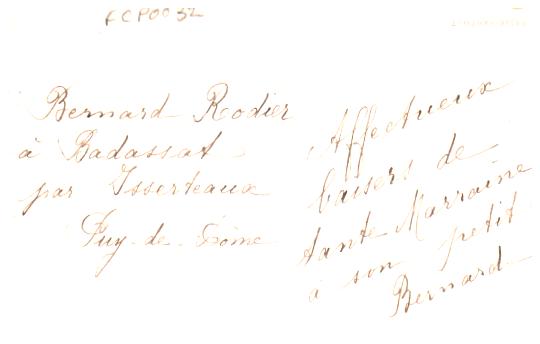 FCP0052
Bernard Rodier
à Badassat
par Isserteaux
Puy-de-Dôme
Affectueux
baisers de
tante Marraine
à son petit
Bernard